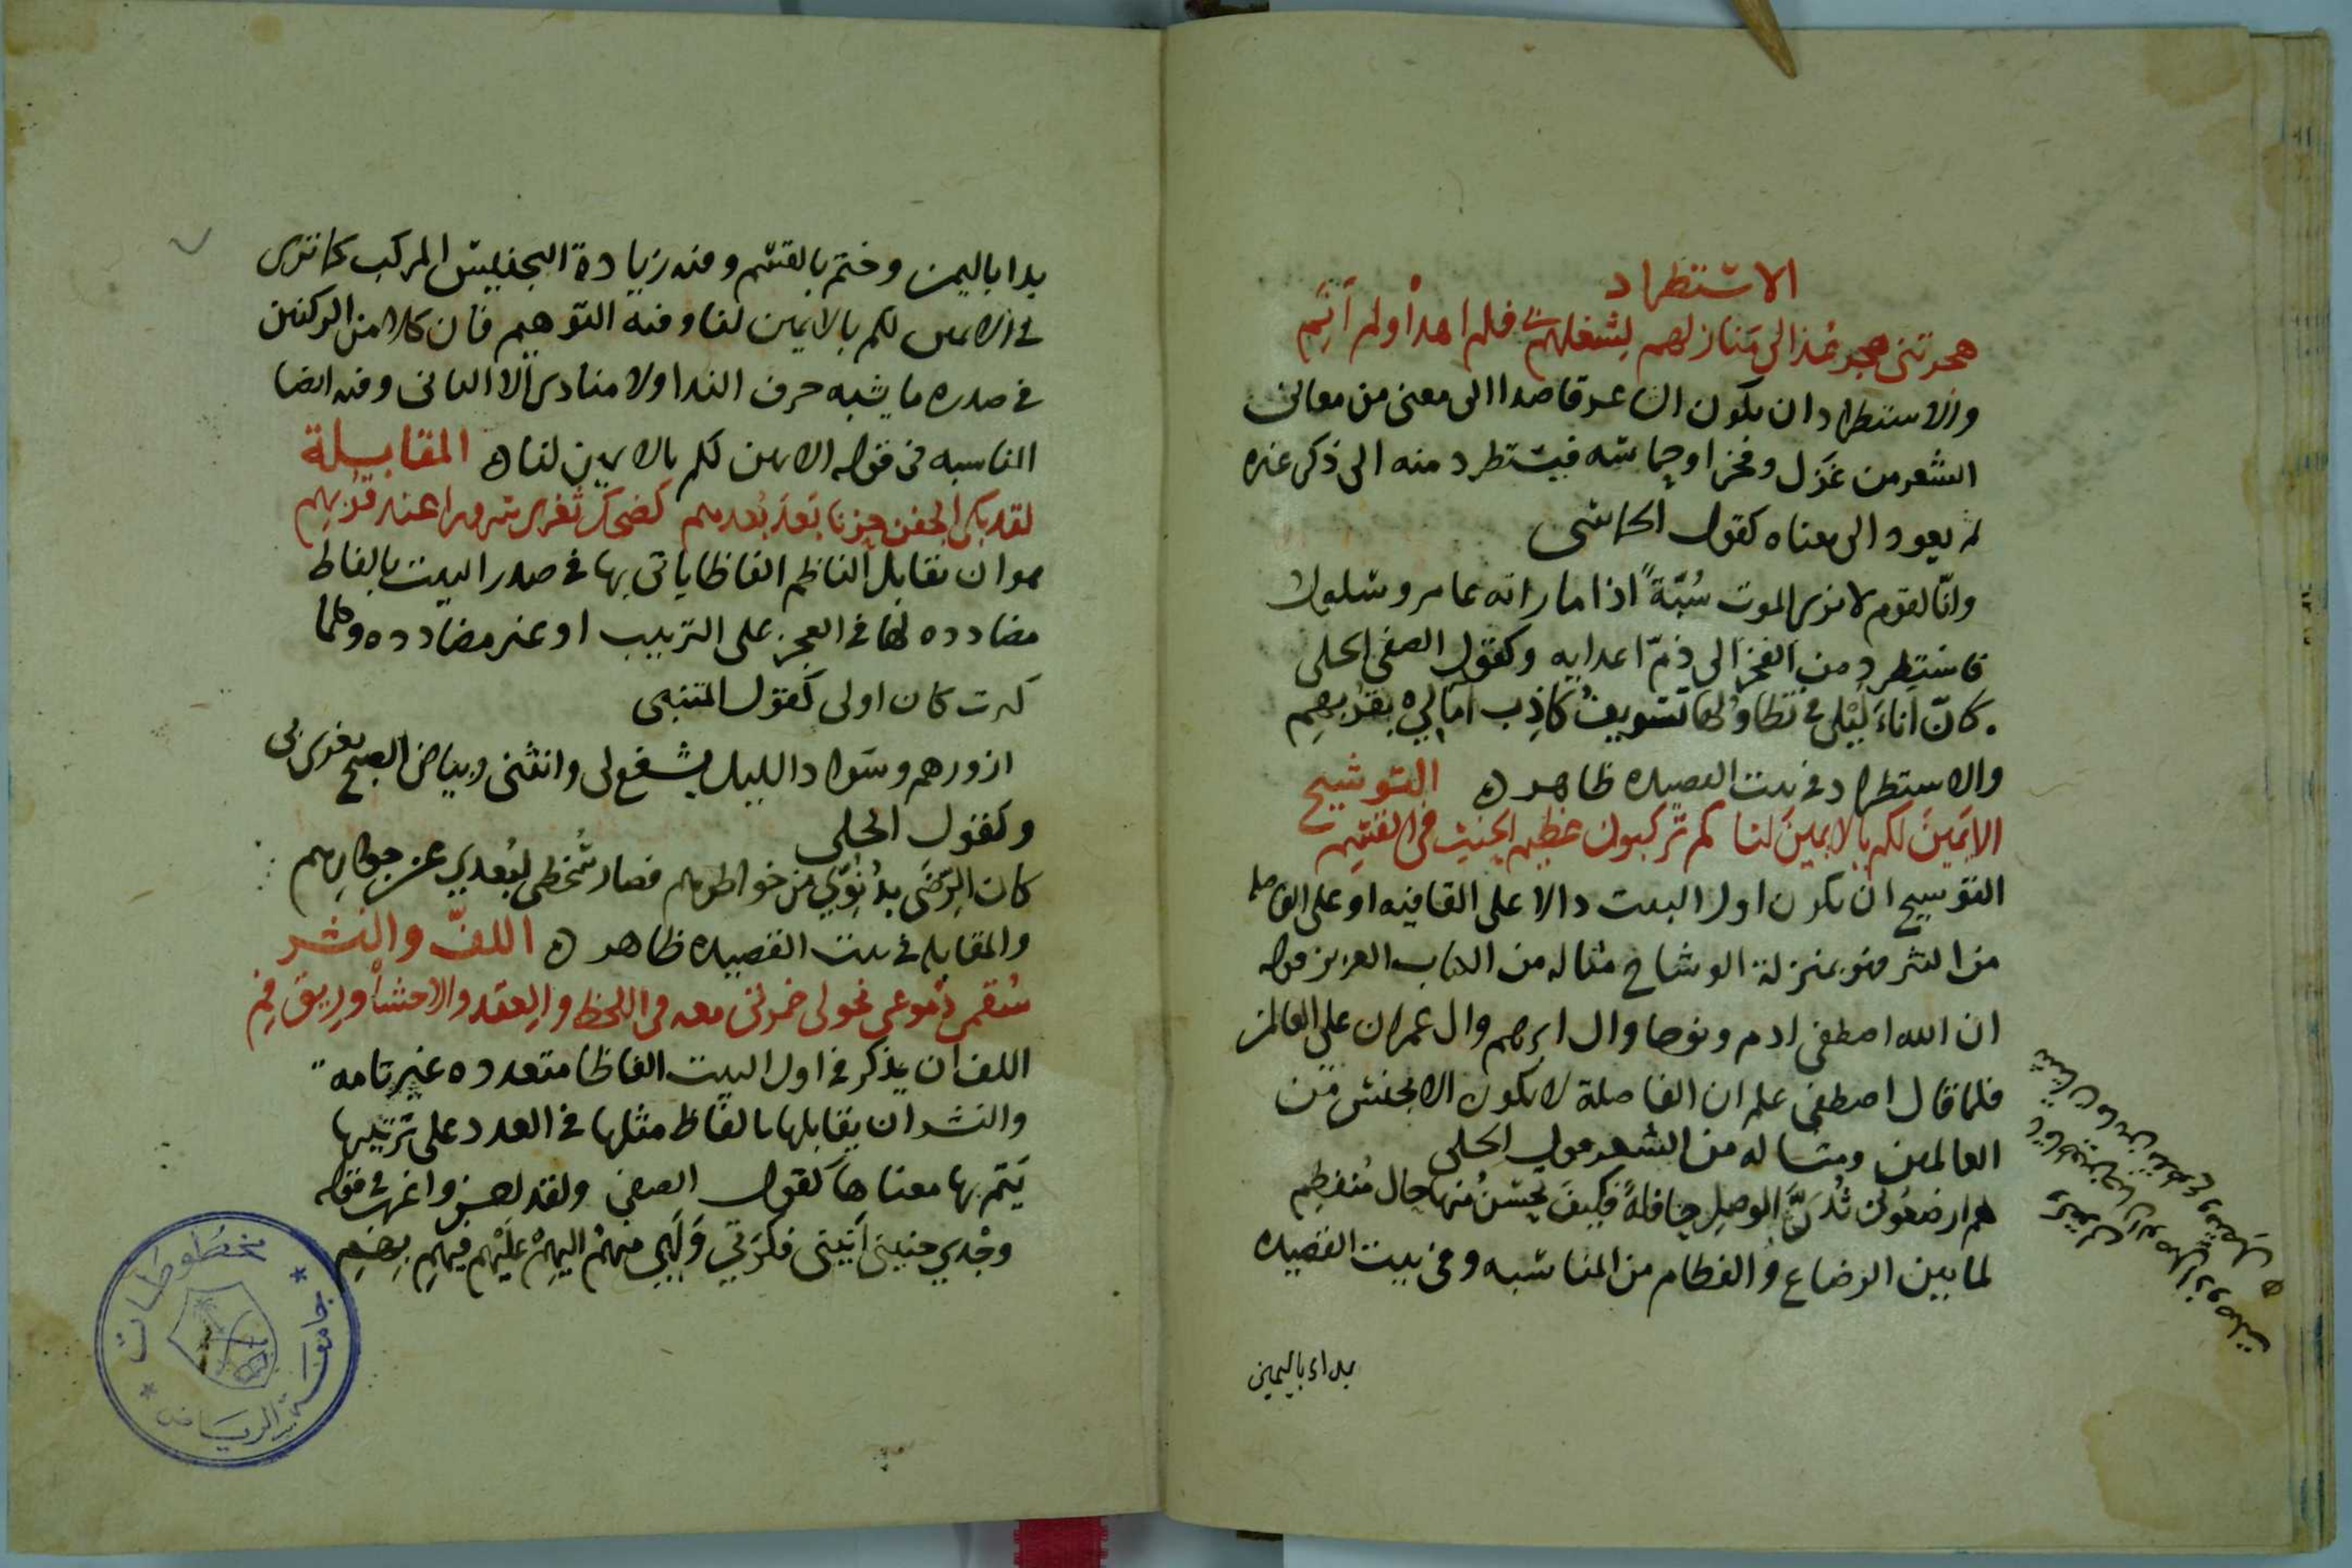 الاستطراد
هجرتني هجر غذالى منازلهم لشغلهم فلم اهدأ ولم انم
والاستطراد ان يكون الشاعر قاصدا الى معنى من معاني
الشعر من غزل وفخر او حماسه فيستطرد منه الى ذكر غيره
ثم يعود الى معناه كقول الحماسى
وانّا لقوم لا نرى الموت سُبّةً اذا ما راته عامر وسلول
فاستطرد من الفخر الى ذمّ اعدايه وكقول الصفى الحلى
كانّ اناءَ لَيْلى في تَطاوُلها تسويفُ كاذِب آمالي بقربهمِ
والاستطراد في بيت القصيده ظاهر ه التوشيح
الايَمينَ لكم بالايمينَ لنا كم تركبون عظيم الحنث في القسَمِ
التوشيح ان يكون اول البيت دالا على القافيه او على الفاصله
من النثر فهو بمنزلة الوشاح مثاله من الكتاب العزيز قوله
ان الله اصطفى ادم ونوحا وال ابرهيم وال عمران على العالمين
فلما قال اصطفى علم ان الفاصلة لا يكون الا بجنس من
العالمين ومثاله من الشعر قول الحلى
هم ارضعوني ثُدىَّ الوصلِ حافلةً فكيفَ يَحسُنُ منها حال مُنفطِمِ
لما بين الرضاع والفطام من المناسبه وفي بيت القصيده
بداء باليمين
بدا باليمين وختم بالقسم وفيه زيادة التجنيس المركب كما ترى
في الايمين لكم بالايمين لنا وفيه التوهيم فان كلا من الركنين
في صدره ما يشبه حرف الندا ولا منادى الا الثاني وفيه ايضا
المناسبه في قوله الايمن لكم بالايمين لنا ه المقابلة
لقد بكى الجفن حزنا بَعدَ بُعدهم كضحك ثغرى سرورا عند قربهم
هو ان يقابل الناظم الفاظا ياتى بها في صدر البيت بالفاظ
مضادده لها في العجز على الترتيب او غير مضادده وكلما
كثرت كان اولى كقول المتنبى
ازورهم وسواد الليل يشفع لى وانثنى وبياض الصبح يغرى بى
وكقول الحلى
كان الرضَى بدُنُوّي من خواطرهم فصار سُخطى لبُعدي عن جوارهم
والمقابله في بيت القصيده ظاهر ه اللفّ والنشر
سُقمى دموعى نحولى خمرتى معه في اللحظ والعقد والاحشأ وريق فمِ
اللف ان يذكر في اول البيت الفاظا متعدده غير تامه
والنشر ان يقابلها بالفاظ مثلها في العدد على ترتيبها
يَتم بها معناها كقول الصفى ولقد اغرب في قوله
وجْدي حنيني اَنيني فكرَتي وَلَهي منهمُ اليهِمْ عَلَيْهم فيهِمِ بِهِمِ
مخطوطات
جامعة الرياض